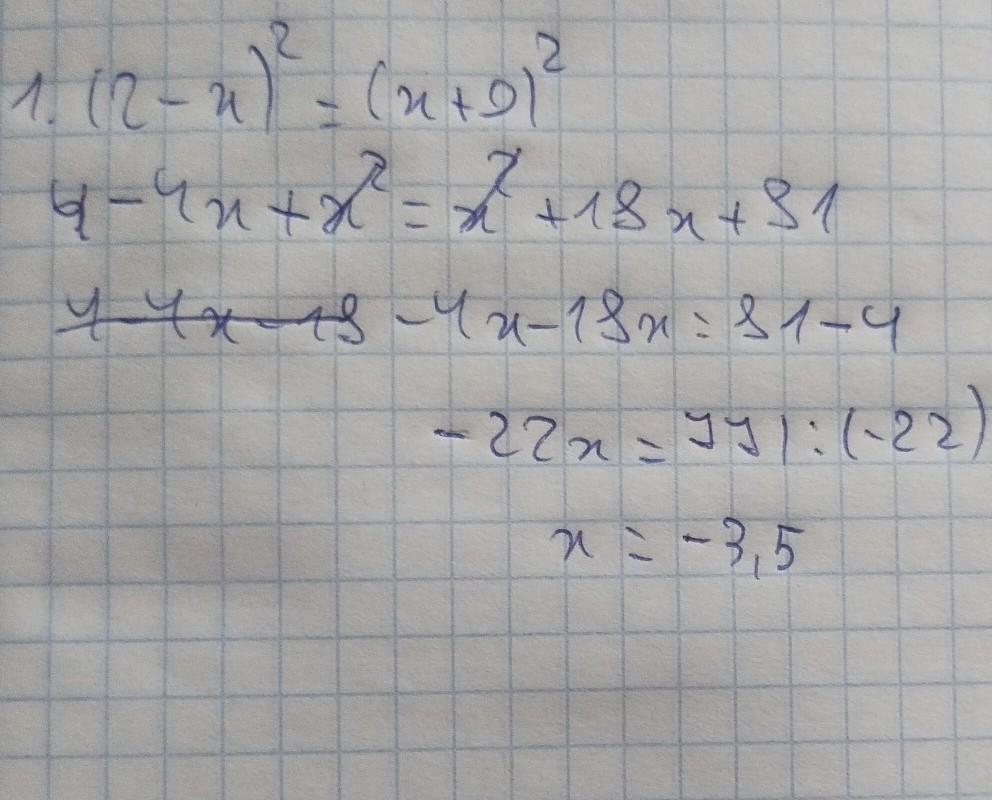 1. (2-x)² = (x+9)²
4-4x+x² = x²+18x+81
4-4x-18 -4x-18x=81-4
-22x = 77|:(-22)
x = -3,5